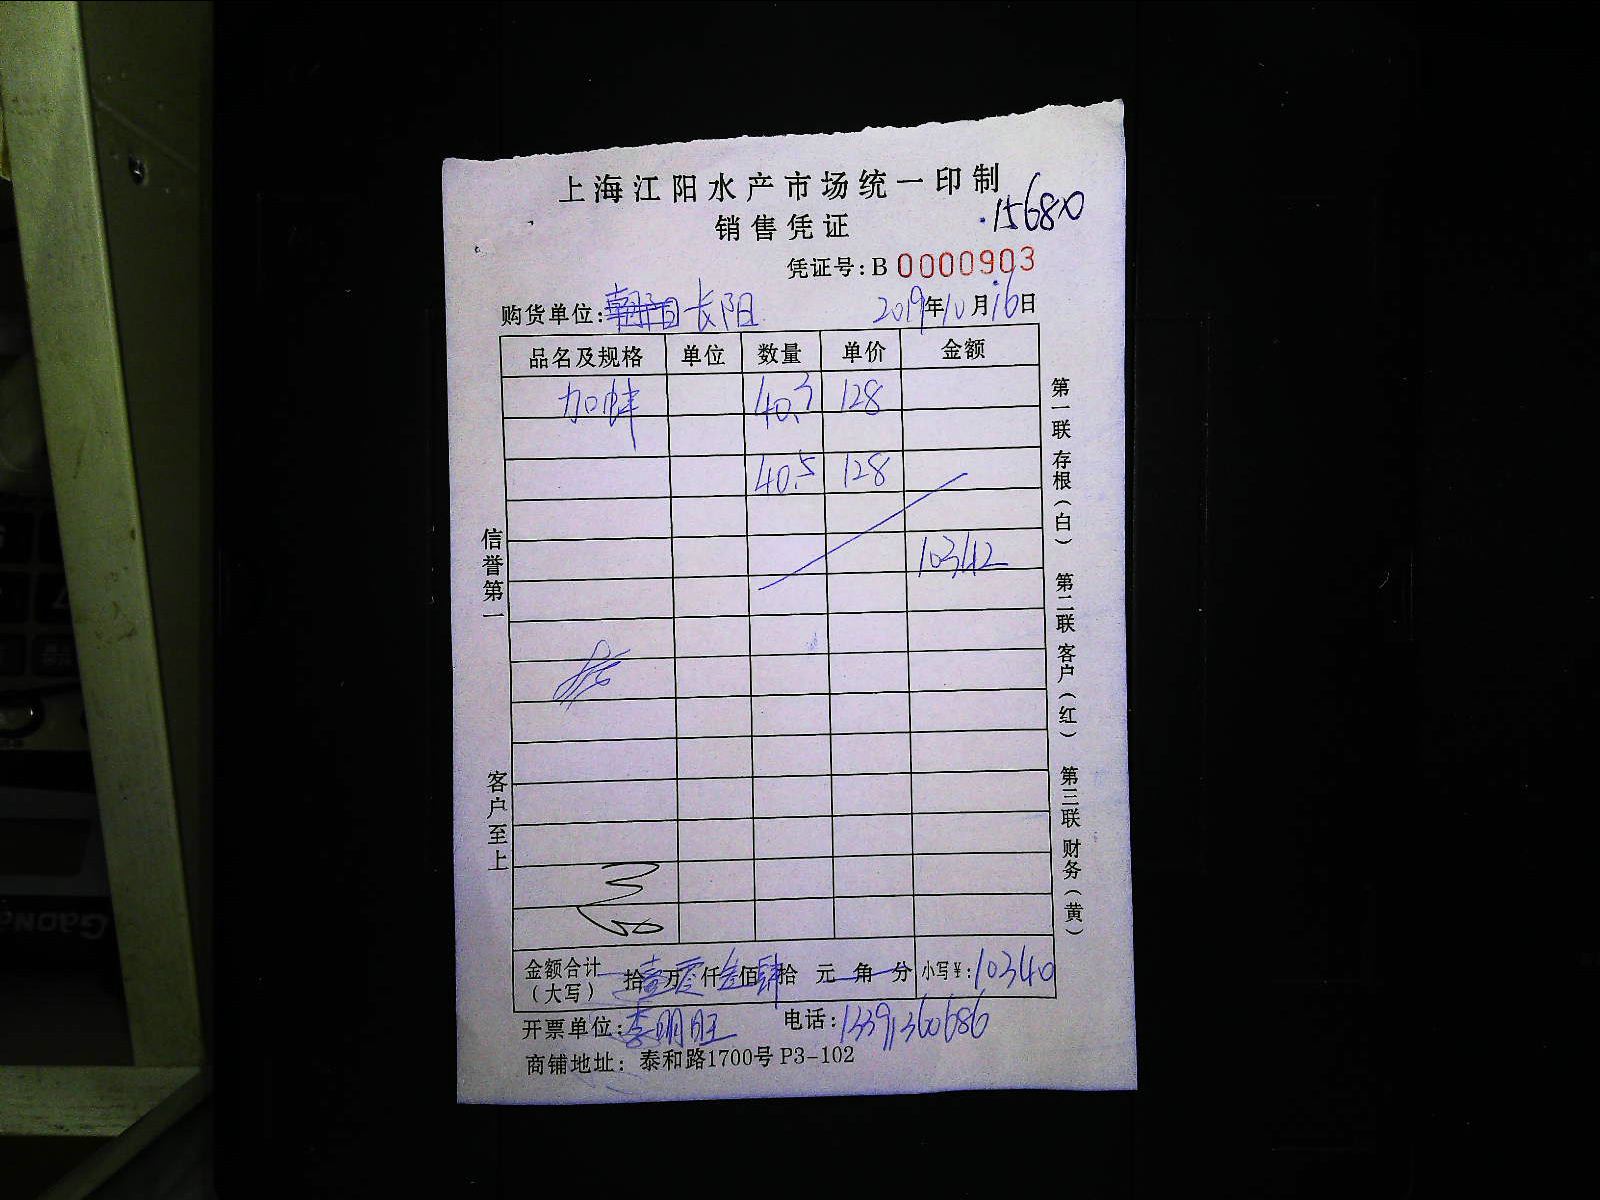 上海江阳水产市场统一印制
销售凭证
·15680
凭证号:B 0000903
购货单位: 长阳 2019年10月16日
品名及规格 单位 数量 单价 金额
加蚌 40.3 128
40.5 128
10342
金额合计(大写) 拾壹万零仟叁佰肆拾 元 角 分 小写¥:10340
开票单位:李明旺 电话:13391360686
商铺地址: 泰和路1700号 P3-102
信誉第一 客户至上
第一联 存根(白) 第二联 客户(红) 第三联 财务(黄)